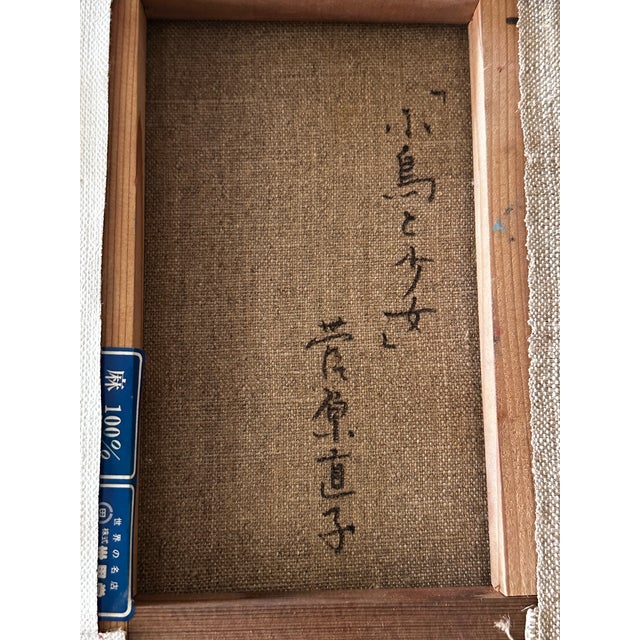 「小鳥と少女」
菅原直子
麻 100%
世界の名店
株式